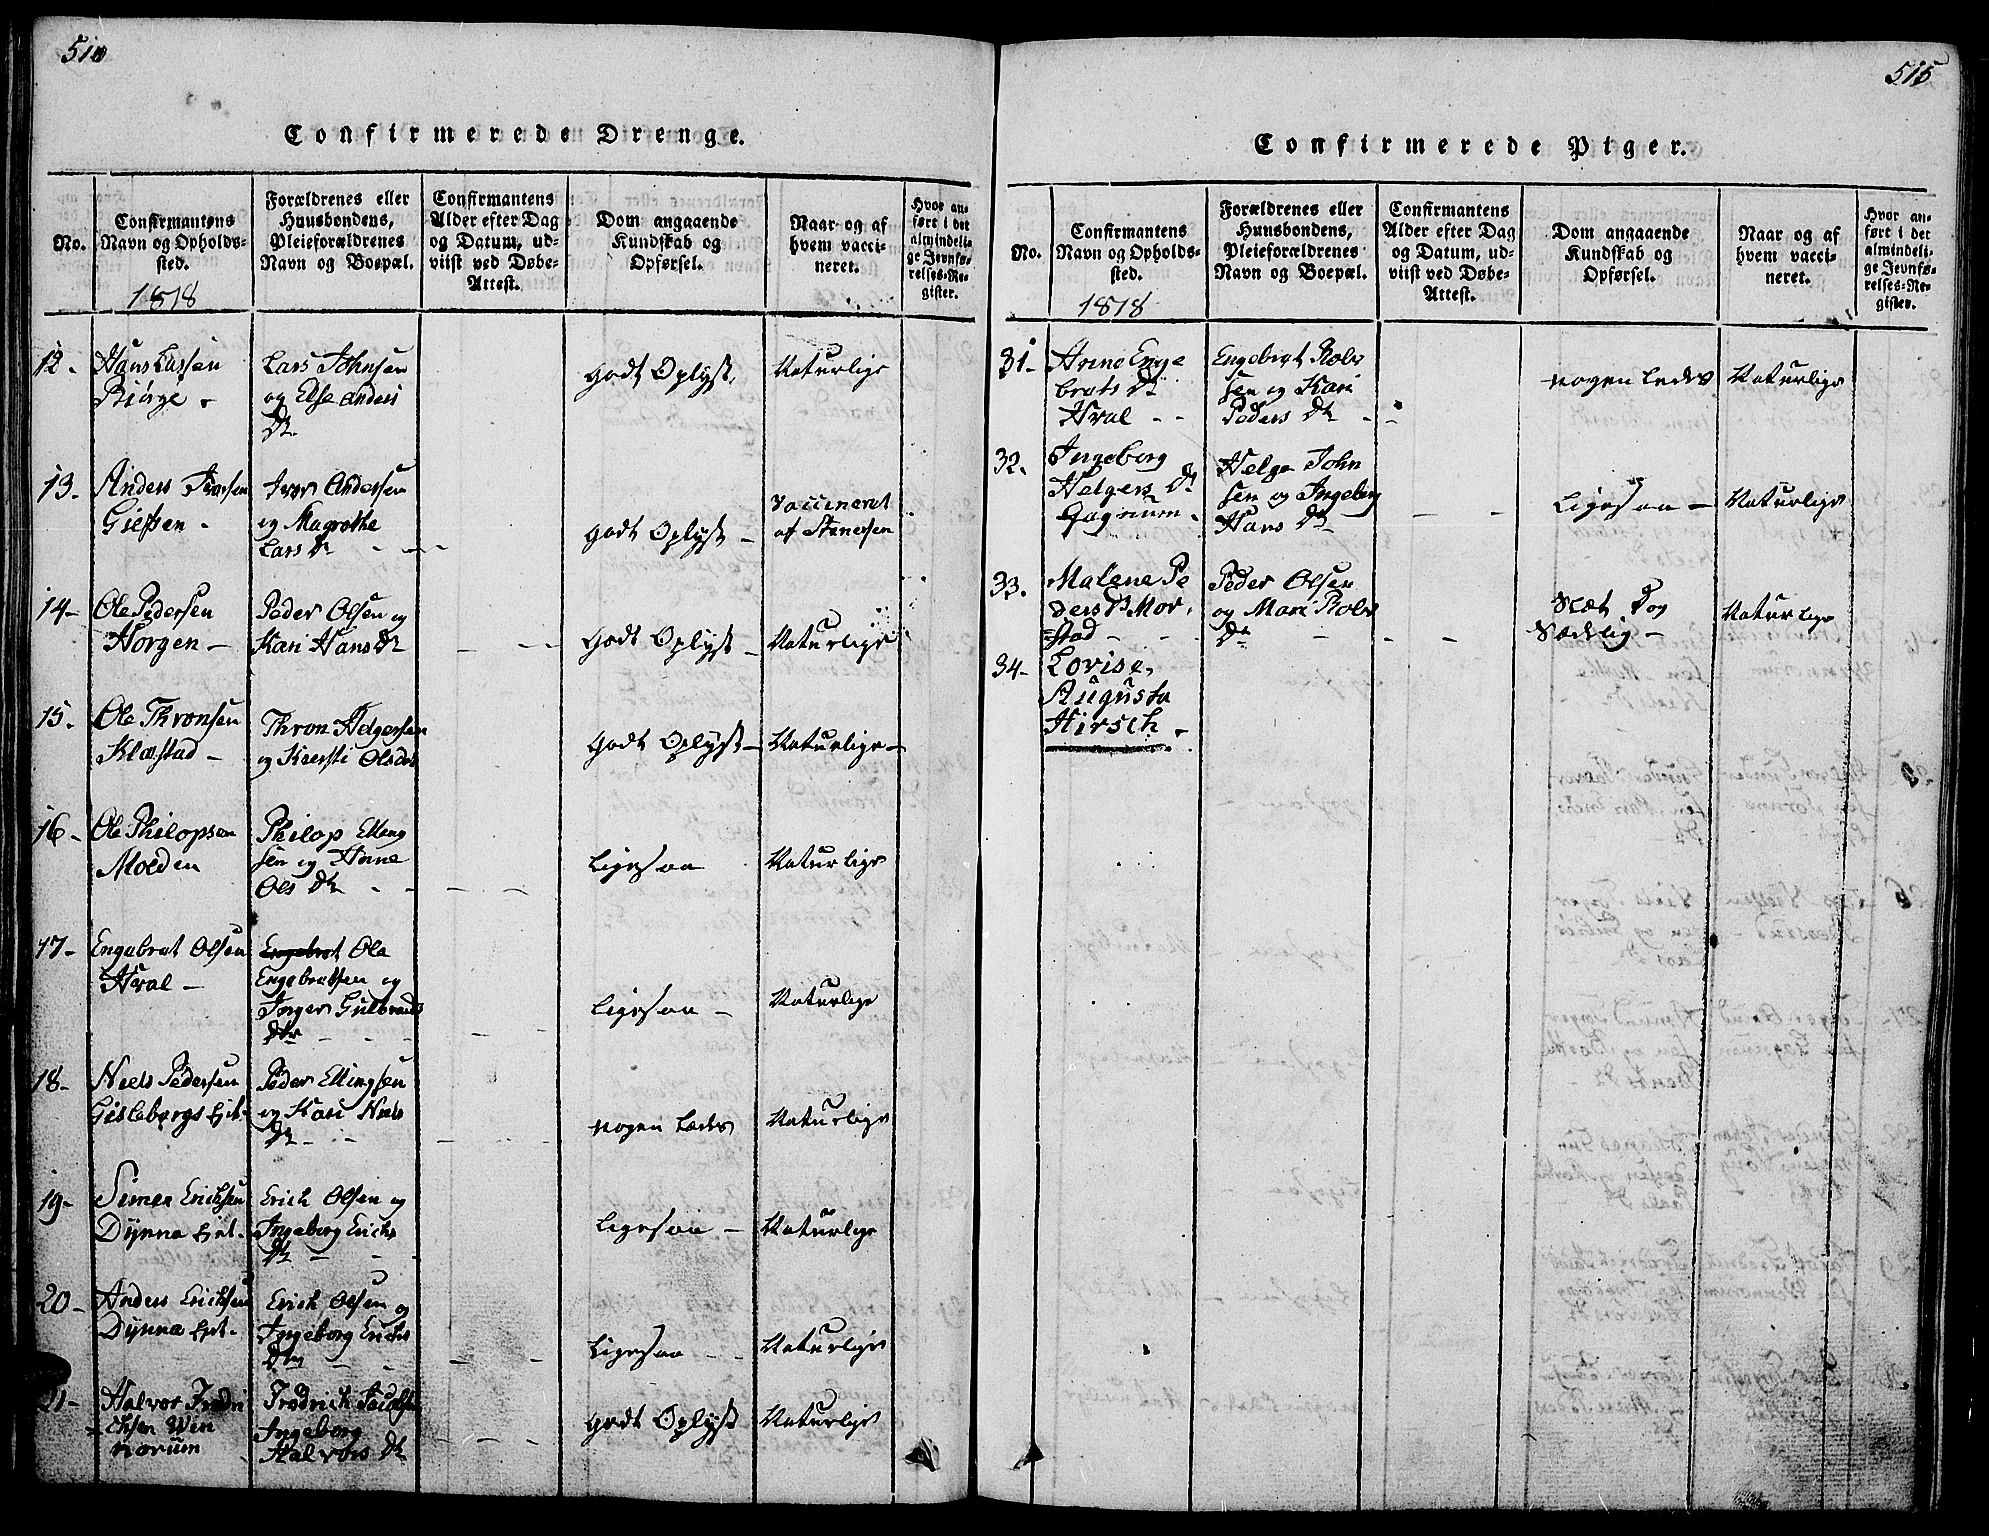 510
Confirmerede Drenge.
No.
Confirmantens
Navn og Opholds-
sted.
1818
Forældrenes eller
Huusbondens,
Pleieforældrenes
Navn og Boepæl.
Confirmantens
Alder efter Dag
og Datum, ud-
viist ved Døbe-
Attest.
Dom angaaende
Kundskab og
Opførsel.
Naar og af
hvem vacci-
neret.
Hvor an-
ført i det
almindeli-
ge Jevnfø-
relses-Re-
gister.
12-
Hans Larsen
Biørge -
Lars Johnsen
og Else Anders
Dr.
Godt Oplyst,
Naturlige
13-
Anders Iversen
-
Iver Andersen
og Magrethe
Lars Dr - - -
Godt Oplyst -
Vaccineret
af
14-
Ole Pedersen
Horgen -
Peder Olsen og
Kari Hans Dr
Godt Oplyst -
Naturlige
15-
Ole Thronsen
Klæstad -
Thron Helgersen
og Kiersti Ols Dr
Godt Oplyst -
Naturlige -
16-
Ole Philopsen
Molden
Philop Elling
sen og Anne
Ols Dr - -
Ligesaa
Naturlige
17-
Engebret Olsen
Hval -
Engebret Ole
Engebretsen og
Inger Gulbrands
Dtr - - -
Ligesaa -
Naturlige
18-
Niels Pedersen
Gislebergs Eiet.
Peder Ellingsen
og Kari Niels
Dr - -
nogen Ledes
Naturlige
19-
Simen Erichsen
Dynna Eiet.
Erich Olsen og
Ingeborg Erichs
Dr - -
Ligesaa -
Naturlige
20-
Anders Erichsen
Dynna Eiet.
Erich Olsen og
Ingeborg Erichs
Dr - -
Ligesaa - -
Naturlige
21-
Halvor Fredri
chsen Wen
norum
Fredrich Jacobsen
Ingeborg
Halvors Dr
Godt Oplyst
Naturlige
515
Confirmerede Piger.
No.
Confirmantens
Navn og Opholds-
sted.
1818
Forældrenes eller
Huusbondens,
Pleieforældrenes
Navn og Boepæl.
Confirmantens
Alder efter Dag
og Datum, ud-
viist ved Døbe-
Attest.
Dom angaaende
Kundskab og
Opførsel.
Naar og af
hvem vacci-
neret.
Hvor an-
ført i det
almindeli-
ge Jevnfø-
relses-Re-
gister.
31-
Anne Enge
brets Dr
Hval - -
Engebret Rolv
sen og Kari
Peders Dr - -
nogen Ledes
Naturlige
32-
Ingeborg
Helgers Dr
Gagnum -
Helge John
sen og Ingeborg
Hans Dr
Ligesaa -
Naturlige
33.
Malene Pe
ders Dr Mor,
stad - -
Peder Olsen
og Mari Rolvs
Dr -
Slet Dog
Sædelig -
Naturlige
34-
Lovise,
Augusta
Hirsch -